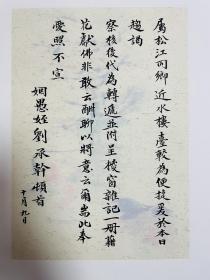 屬松江同鄉近水樓臺較為便接爰於本日
趨謁
察核後代為轉遞並附呈授窗雜記一冊藉
花獻佛非敢云酬聊以將意云爾耑此奉
愛照不宣
姻愚姪劉承幹頓首
十月九日